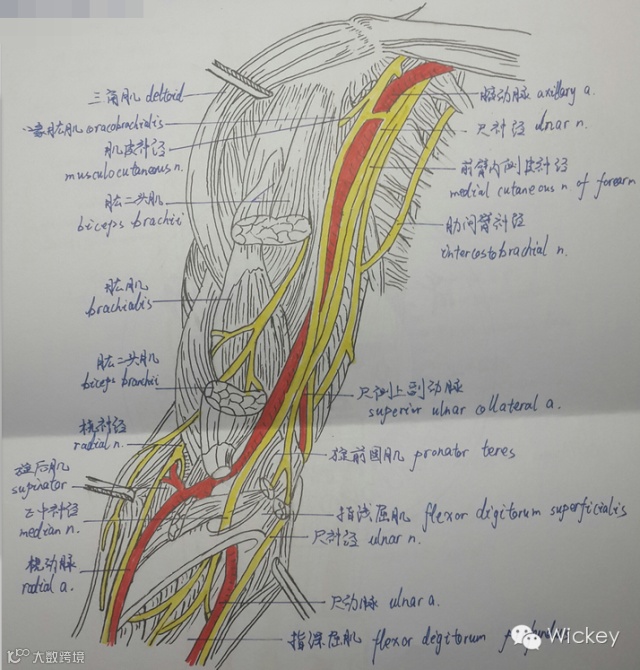 三角肌 deltoid
喙肱肌 coracobrachialis
肌皮神经
musculocutaneous n.
肱二头肌
biceps brachii
肱肌
brachialis
肱二头肌
biceps brachii
桡神经
radial n.
旋后肌
supinator
正中神经
median n.
桡动脉
radial a.
腋动脉 axillary a.
尺神经 ulnar n.
前臂内侧皮神经
medial cutaneous n of forearm
肋间臂神经
intercostobrachial n.
尺侧上副动脉
superior ulnar collateral a.
旋前圆肌 pronator teres
指浅屈肌 flexor digitorum superficialis
尺神经 ulnar n.
尺动脉 ulnar a.
指深屈肌 flexor digitorum
Wickey
大数跨境